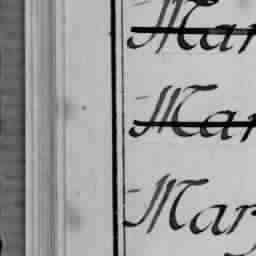 Mar
Mar
Mary